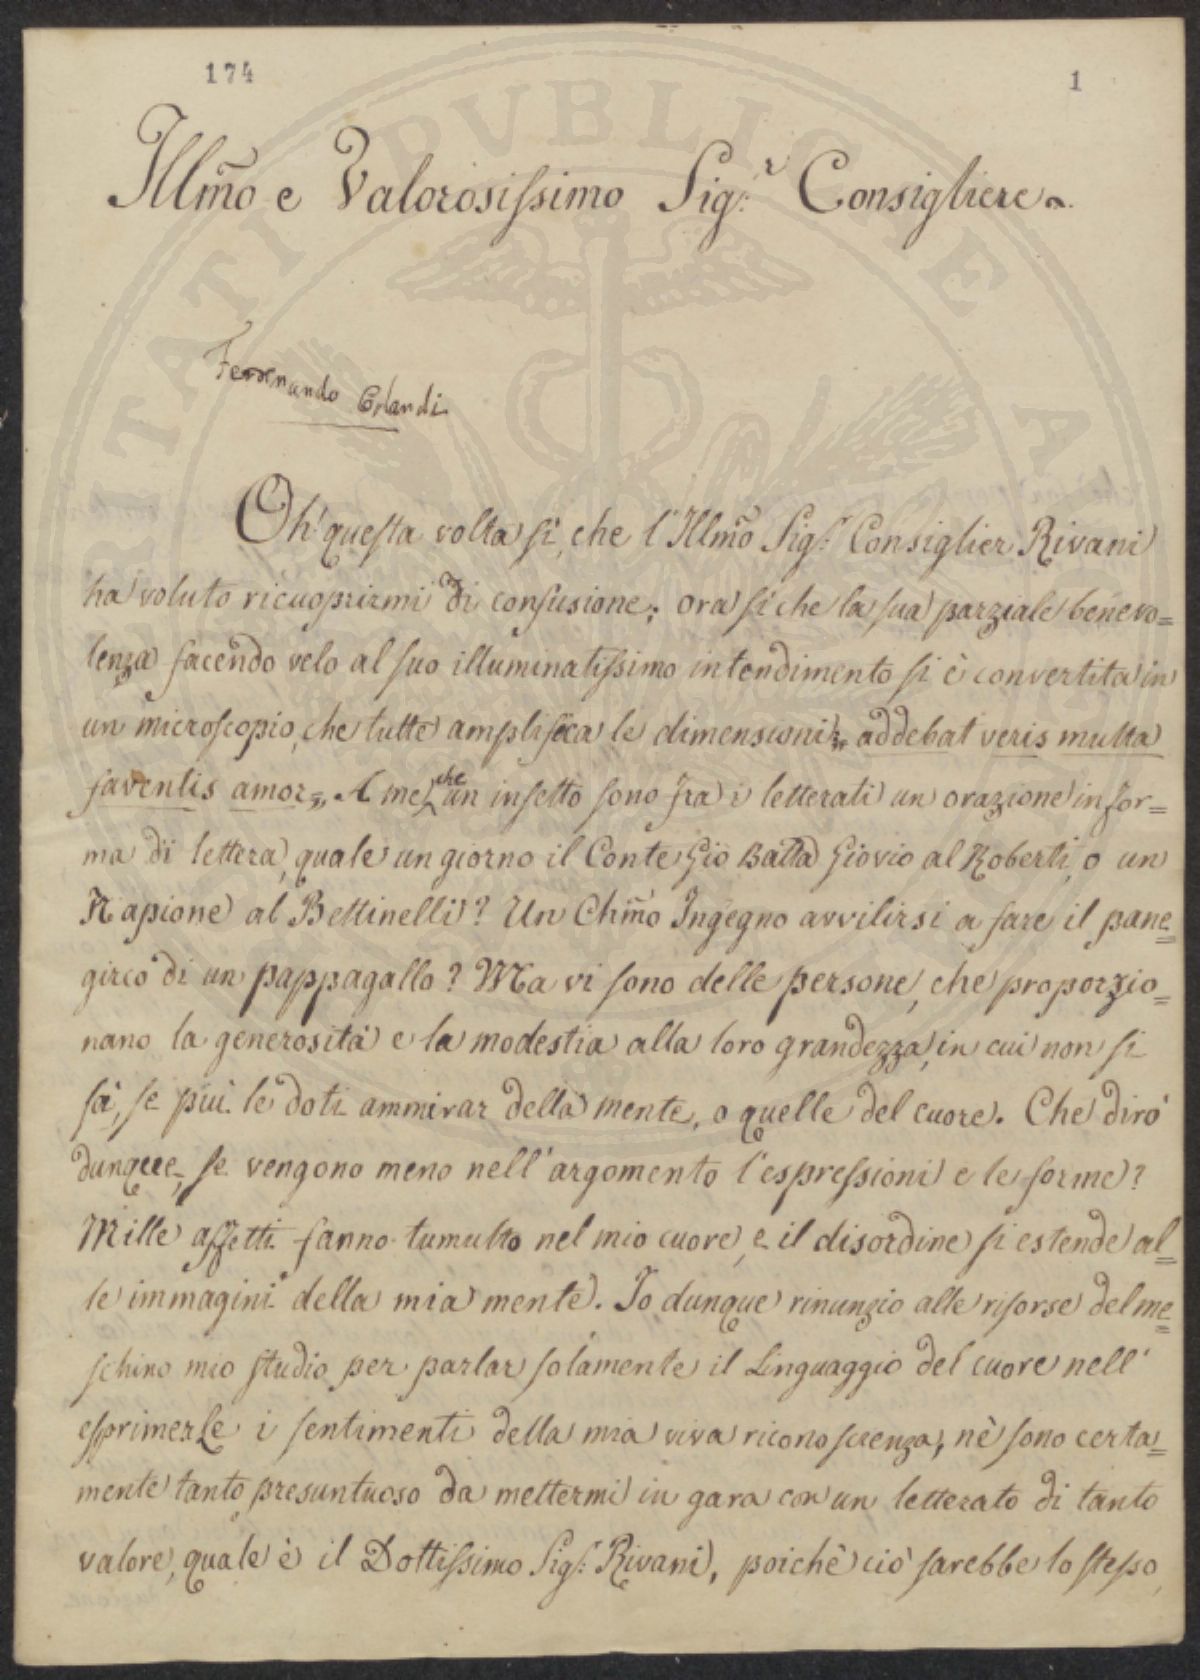 174
1
Illm̃o e Valorosissimo Sig:r Consigliere
Ferdinando Orlandi
Oh! questa volta sì, che l'Illm̃o Sig: Consiglier Rivani
ha voluto ricuoprirmi di confusione; ora sì che la sua parziale benevo=
lenza facendo velo al suo illuminatissimo intendimento si è convertita in
un microscopio, che tutte amplifica le dimensioni, addebat veris multa
faventis amor,, A me, che un insetto sono fra i letterati un orazione in for=
ma di lettera, quale un giorno il Conte Gio Batta Giovio al Roberti, o un
Napione al Bettinelli? Un Chm̃o Ingegno avvilirsi a fare il pane=
girco di un pappagallo? Ma vi sono delle persone, che proporzio=
nano la generosità e la modestia alla loro grandezza, in cui non si
sà, se più le doti ammirar della mente, o quelle del cuore. Che dirò
dunque, se vengono meno nell'argomento l'espressioni e le forme?
Mille affetti fanno tumulto nel mio cuore, e il disordine si estende al=
le immagini della mia mente. Io dunque rinunzio alle risorse del me=
schino mio studio per parlar solamente il Linguaggio del cuore nell'
esprimerLe i sentimenti della mia viva riconoscienza, nè sono certa=
mente tanto presuntuoso da mettermi in gara con un letterato di tanto
valore, quale è il Dottissimo Sig: Rivani, poichè ciò sarebbe lo stesso,
PVBLICAE